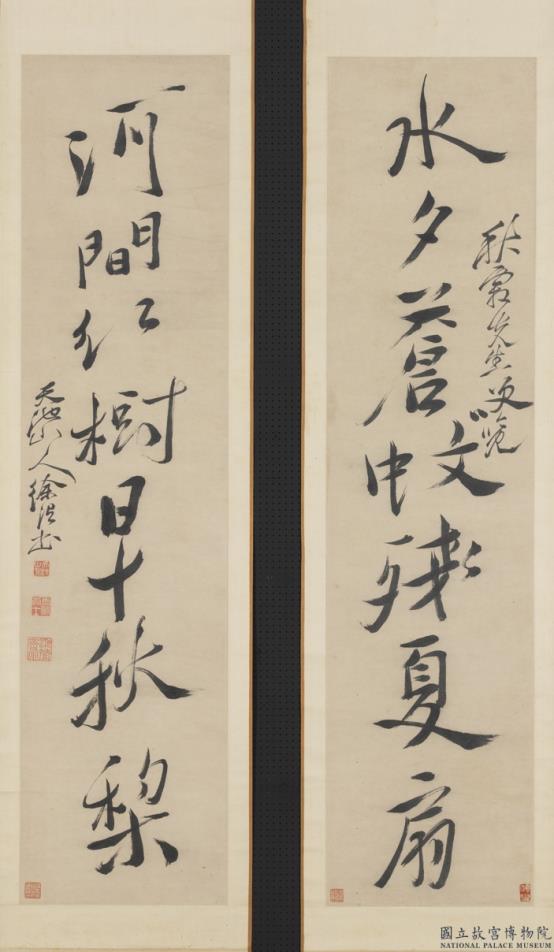 秋先生覽
水夕蒼蚊殘夏扇
河間紅樹早秋梨
天池山人徐渭書
國立故宮博物院
NATIONAL PALACE MUSEUM